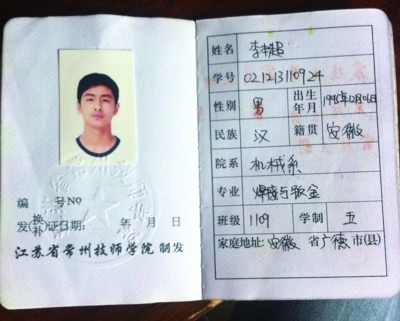 编 号 No
发(换补)证日期： 年 月 日
江苏省常州技师学院 制发
姓名 李
学号 021213110924
性别 男 出生年月 1995年12月06日
民族 汉 籍贯 安徽
院系 机械系
专业 焊接与钣金
班级 1109 学制 五
家庭地址: 安徽 省 广德 市(县)